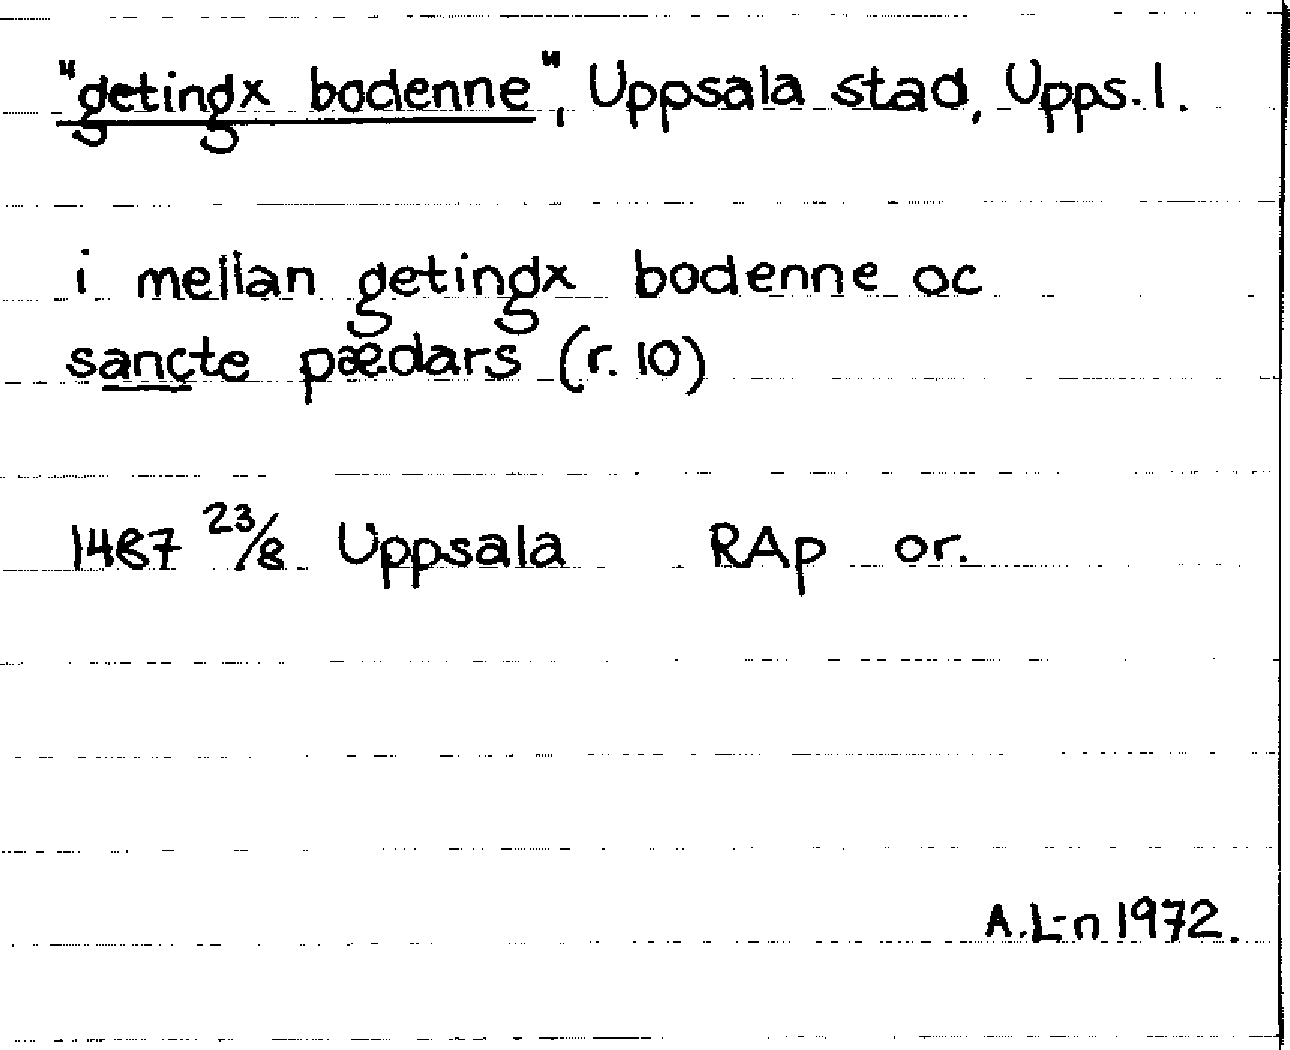 "getingx bodenne", Uppsala stad, Upps. l.
i mellan getingx bodenne oc
sancte pædars (r. 10)
1487 23/8 Uppsala RAp or.
A. L-n 1972.